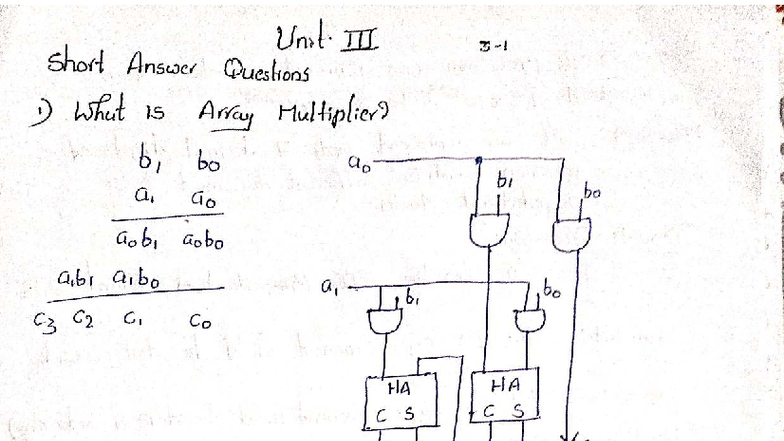 Unit III 3-1
Short Answer Questions
1) What is Array Multiplier?
b1 b0
a1 a0
a0b1 a0b0
a1b1 a1b0
c3 c2 c1 c0
a0
b1
b0
a1
b1
b0
HA
C S
HA
C S